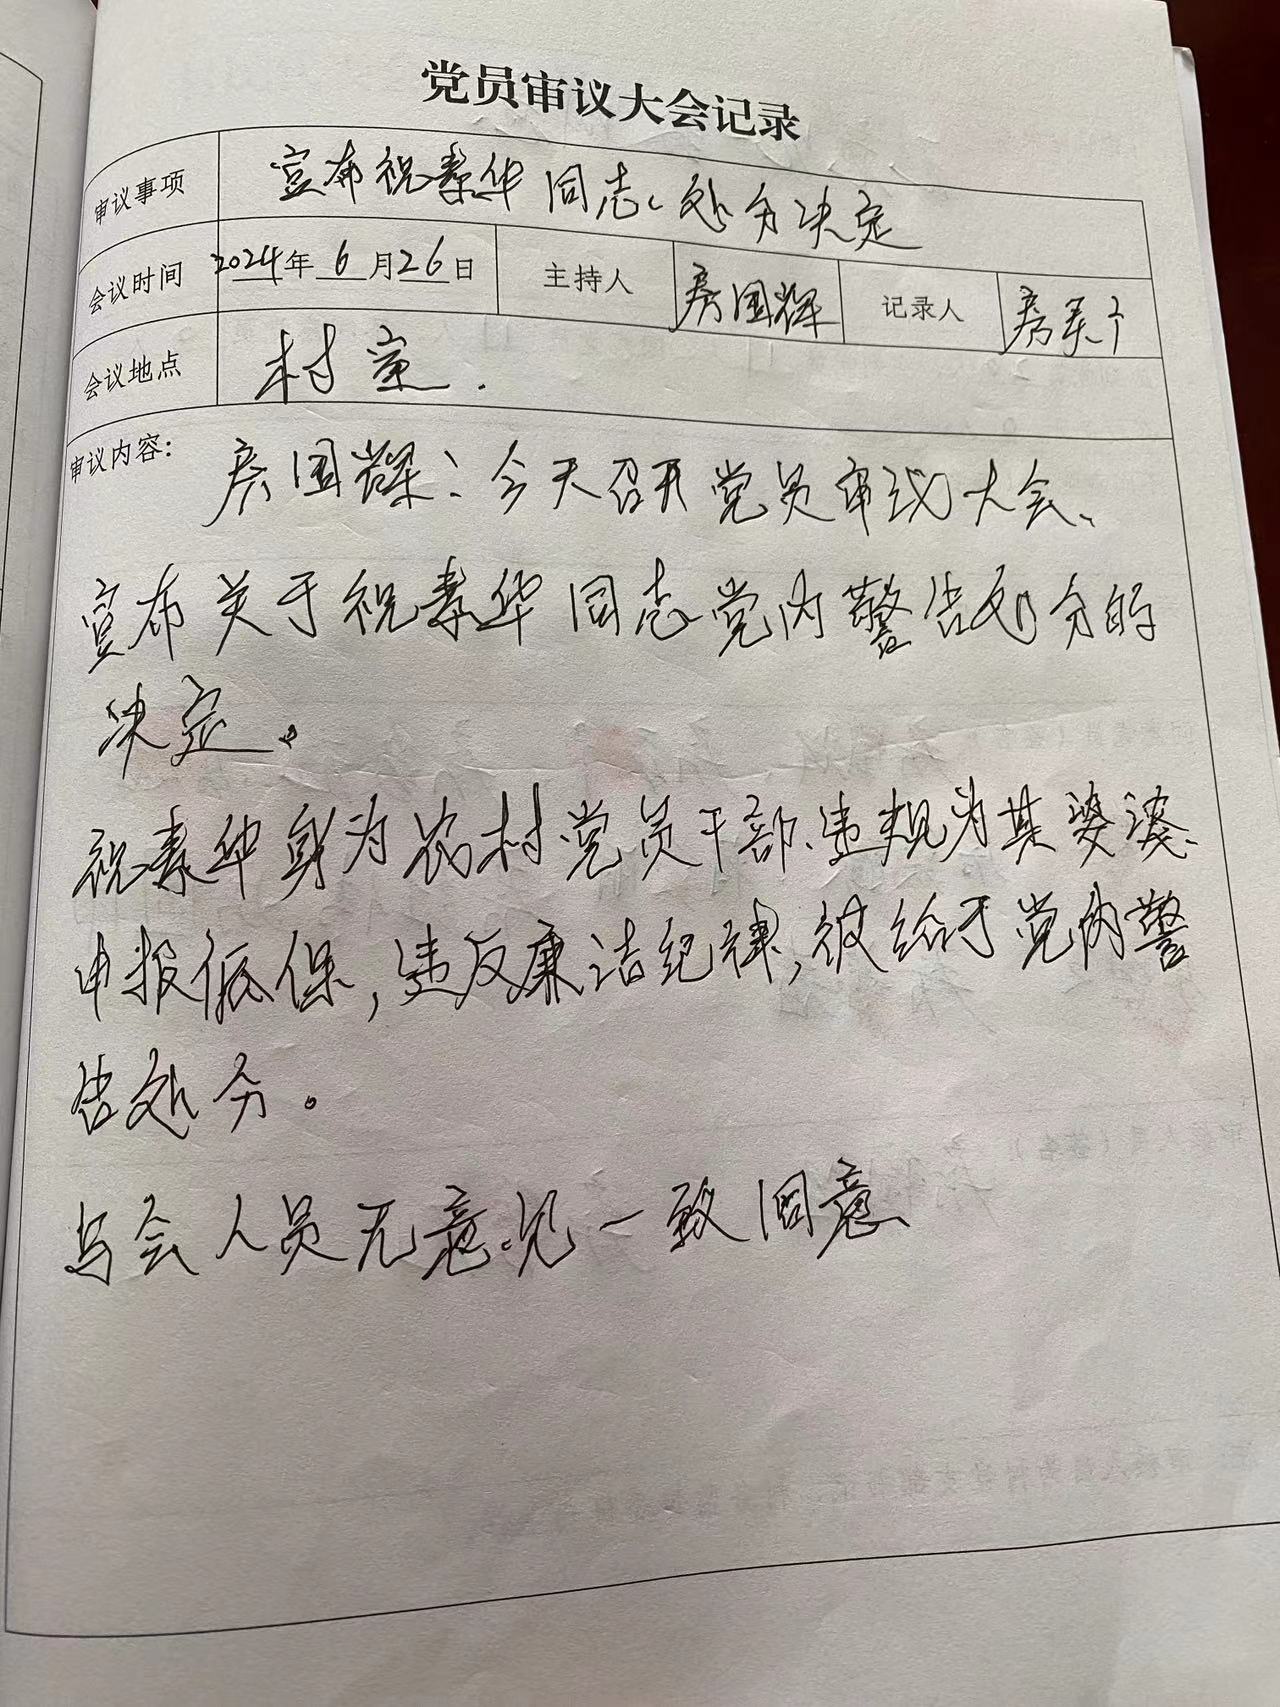 党员审议大会记录
审议事项 宣布祝素华同志处分决定
会议时间 2024年6月26日 主持人 房国辉 记录人 房
会议地点 村室.
审议内容: 房国辉:今天召开党员审议大会、
宣布关于祝素华同志党内警告处分的
决定。
祝素华身为农村党员干部、违规为其婆婆
申报低保,违反廉洁纪律,被给于党内警
告处分。
与会人员无意见一致同意